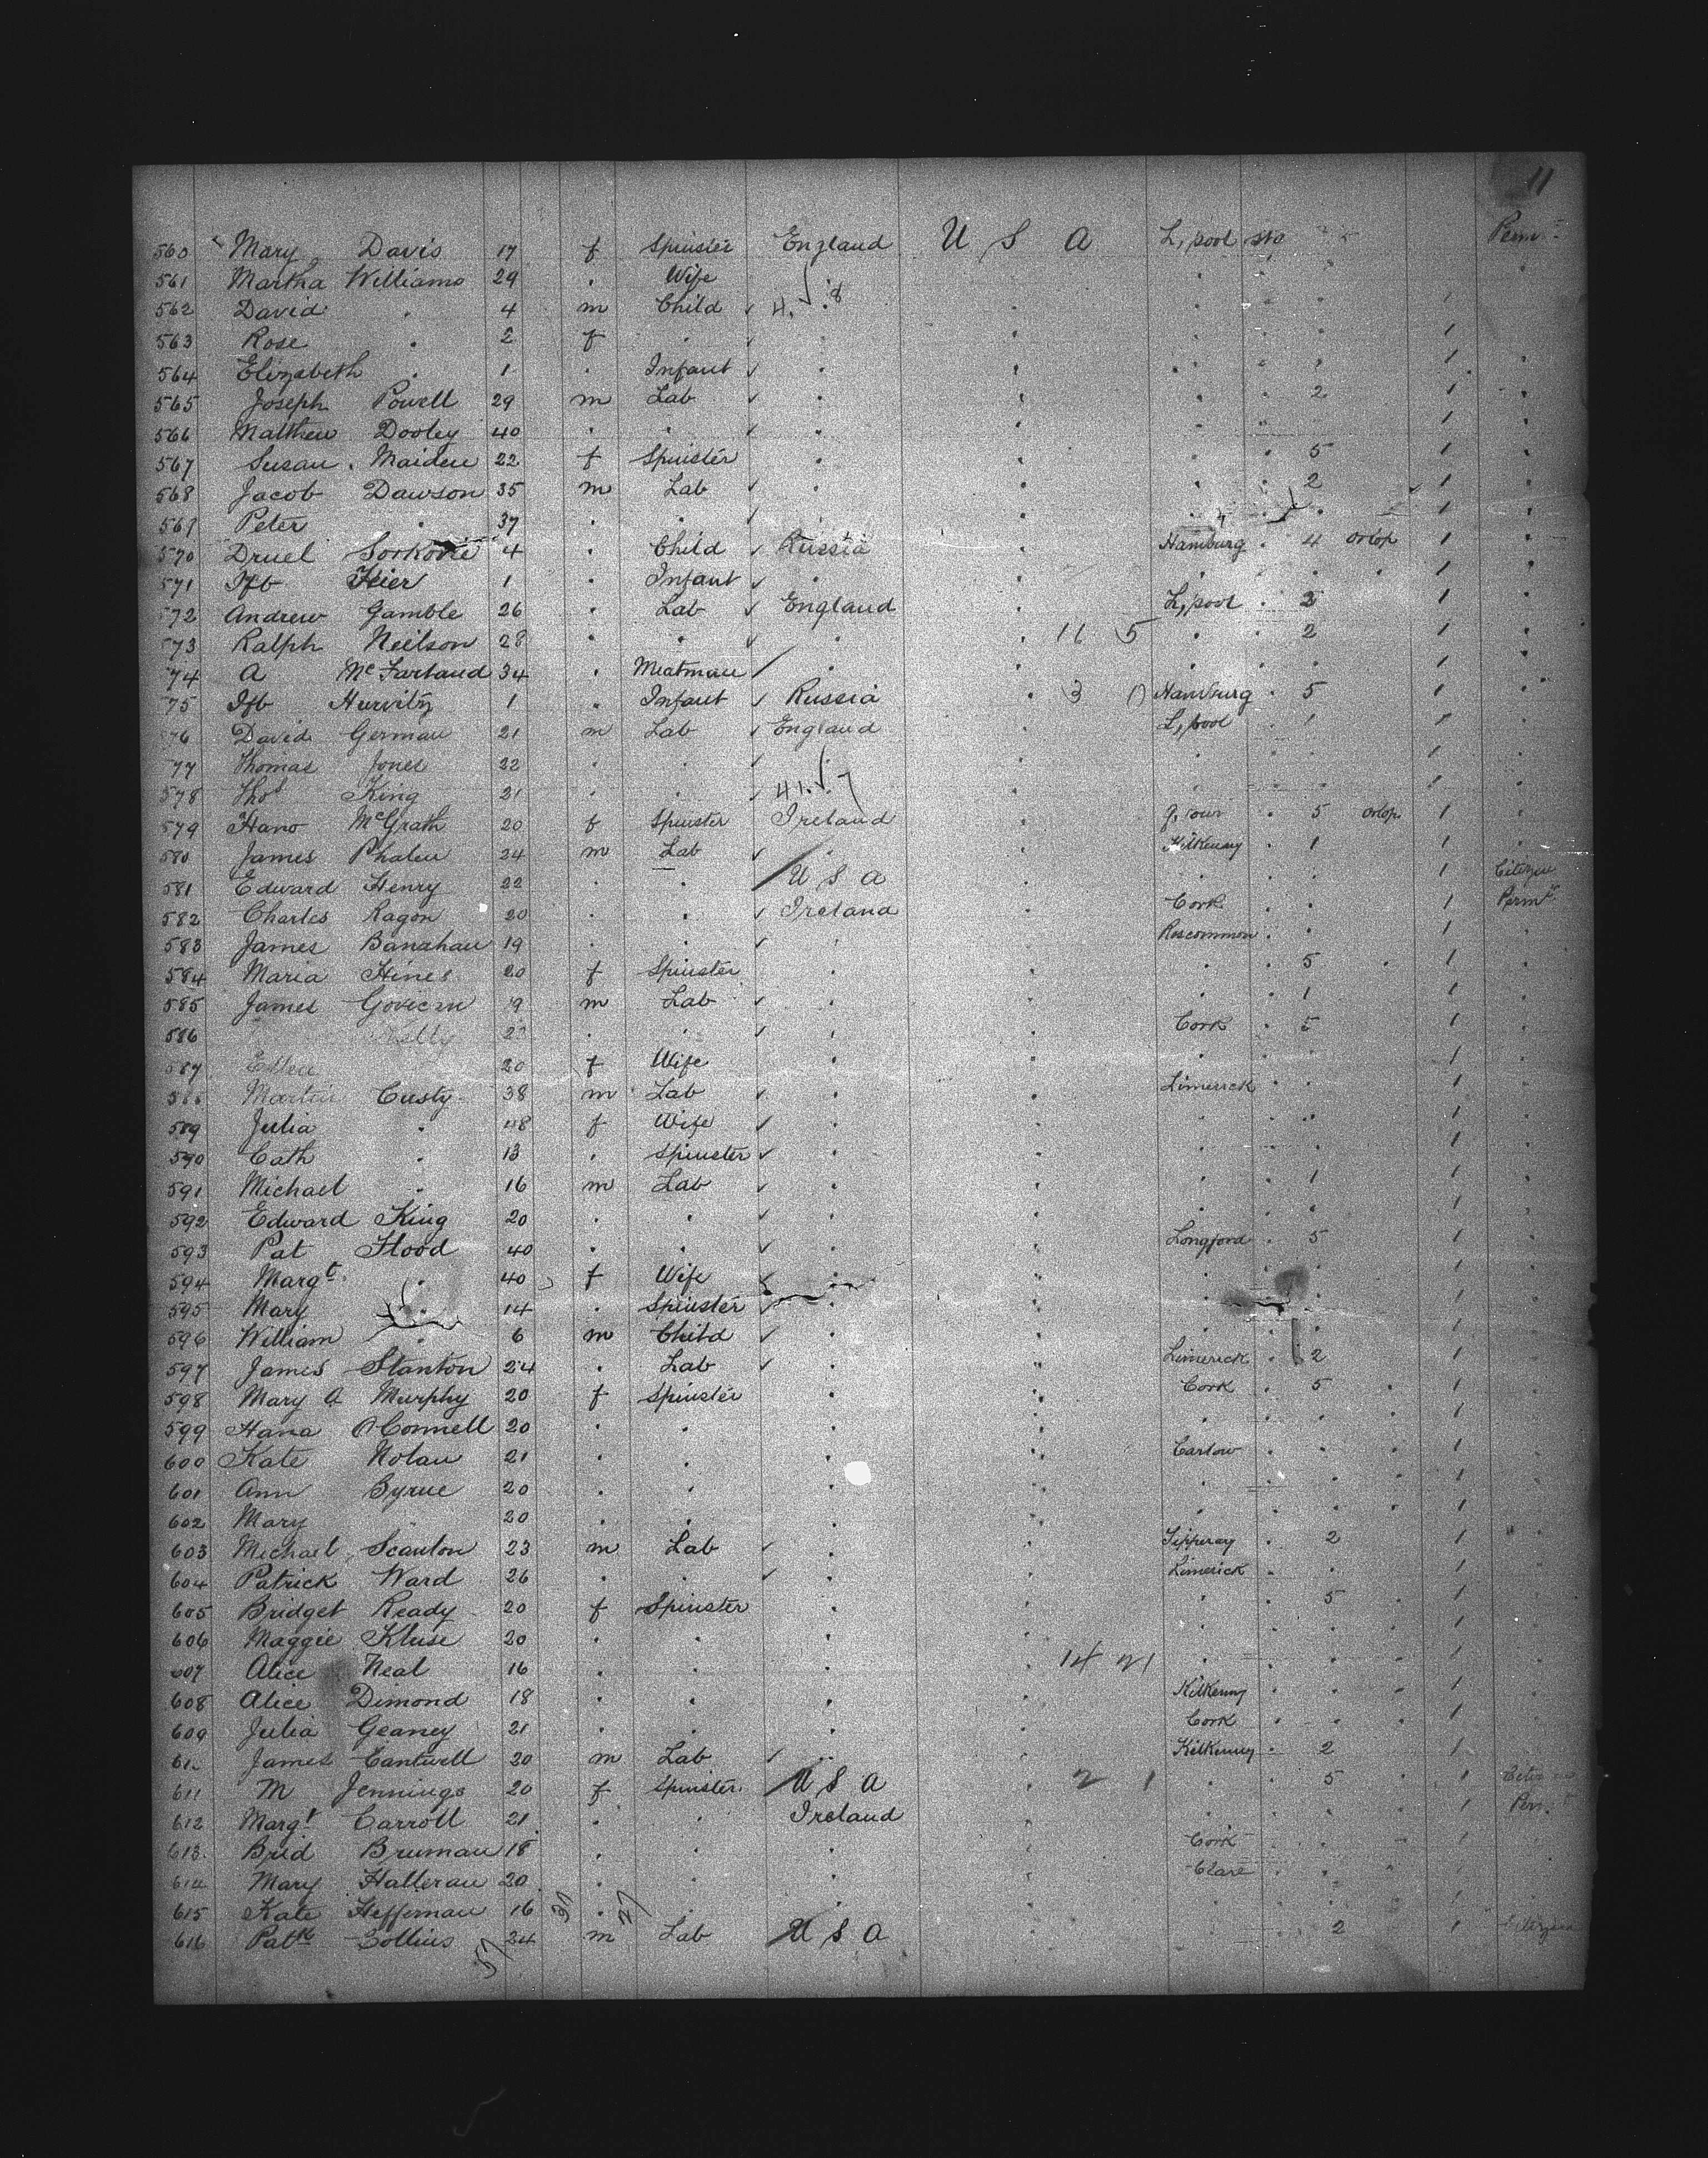 11
560 Mary Davis 17 f Spinster England U S A L,pool Sto 5 Permt
561 Martha Williams 29 . Wife . . . . .
562 David . 4 m Child . . . . . 1
563 Rose . 2 f . . . . . . 1
564 Elizabeth . 1 . Infant . . . . . 1 .
565 Joseph Powell 29 m Lab . . . . 2 1 .
566 Matthew Dooley 40 . . . . . . . 1 .
567 Susan Maiden 22 f Spinster . . . . 5 1 .
568 Jacob Dawson 35 m Lab . . . . 2 1 .
569 Peter . 37 . . . . . . . 1 .
570 Druel 4 . Child Russia . Hamburg . 4 orlop 1 .
571 Ifb 1 . Infant . . . . . . 1 .
572 Andrew Gamble 26 . Lab England . L,pool . 2 1 .
573 Ralph Neilson 28 . . . . 11 5 . . 2 1 .
74 A McFarland 34 . Meatman . . . . . 1 .
75 Ifb Hurvitz 1 . Infant Russia . 3 Hamburg . 5 1 .
76 David German 21 m Lab England . L,pool . 1 1 .
77 Thomas Jones 22 . . . . . . . 1 .
578 Thos King 21 . . . . . . . 1 .
579 Hano McGrath 20 f Spinster Ireland . . 5 orlop 1 .
580 James Phalen 24 m Lab . . Kilkenny . 1 1 .
581 Edward Henry 22 . . U S A . . . . 1 Citizen
582 Charles Ragon 20 . . Ireland . Cork . . 1 Permt
583 James Banahan 19 . . . . Roscommon . . 1 .
584 Maria Hines 20 f Spinster . . . . 5 . 1 .
585 James 19 m Lab . . . . 1 1 .
586 Kelly . . . . Cork . 5 1 .
587 Ellen 20 f Wife . . . . . 1 .
Martin Custy 38 m Lab . . Limerick . . 1 .
589 Julia . 48 f Wife . . . . . 1 .
590 Cath . 13 . Spinster . . . . . 1 .
591 Michael . 16 m Lab . . . . 1 1 .
592 Edward King 20 . . . . . . . 1 .
593 Pat Flood 40 . . . . Longford . 5 1 .
594 Margt . 40 f Wife . . . . . 1 .
595 Mary . 14 . Spinster . . . . . 1 .
596 William . 6 m Child . . . . . 1 .
597 James Stanton 24 . Lab . . Limerick . 2 1 .
598 Mary A Murphy 20 f Spinster . . Cork . 5 . 1 .
599 Hana O'Connell 20 . . . . . . . . 1 .
600 Kate Nolan 21 . . . . Carlow . . . 1 .
601 Ann Byrne 20 . . . . . . . . 1 .
602 Mary . 20 . . . . . . . . 1 .
603 Michael Scanlon 23 m Lab . . Tipperay . 2 1 .
604 Patrick Ward 26 . . . . Limerick . . 1 .
605 Bridget Ready 20 f Spinster . . . . 5 . 1 .
606 Maggie 20 . . . . . . . . 1 .
607 Alice Neal 16 . . . . 14 21 . . . . 1 .
608 Alice Dimond 18 . . . . Kilkenny . . . 1 .
609 Julia Geaney 21 . . . . Cork . . . 1 .
James Cantwell 20 m Lab . . Kilkenny . 2 1 .
611 M Jennings 20 f Spinster U S A . 2 1 . . 5 . 1 Citizen
612 Margt Carroll 21 . . Ireland . . . . . 1
613 Brid 18 . . . . Cork . . . 1 .
614 Mary Halleran 20 . . . . Clare . . . 1 .
615 Kate Heffernan 16 . . . . . . . . 1 .
616 Patk Collins 24 m Lab U S A 2 1 Citizen